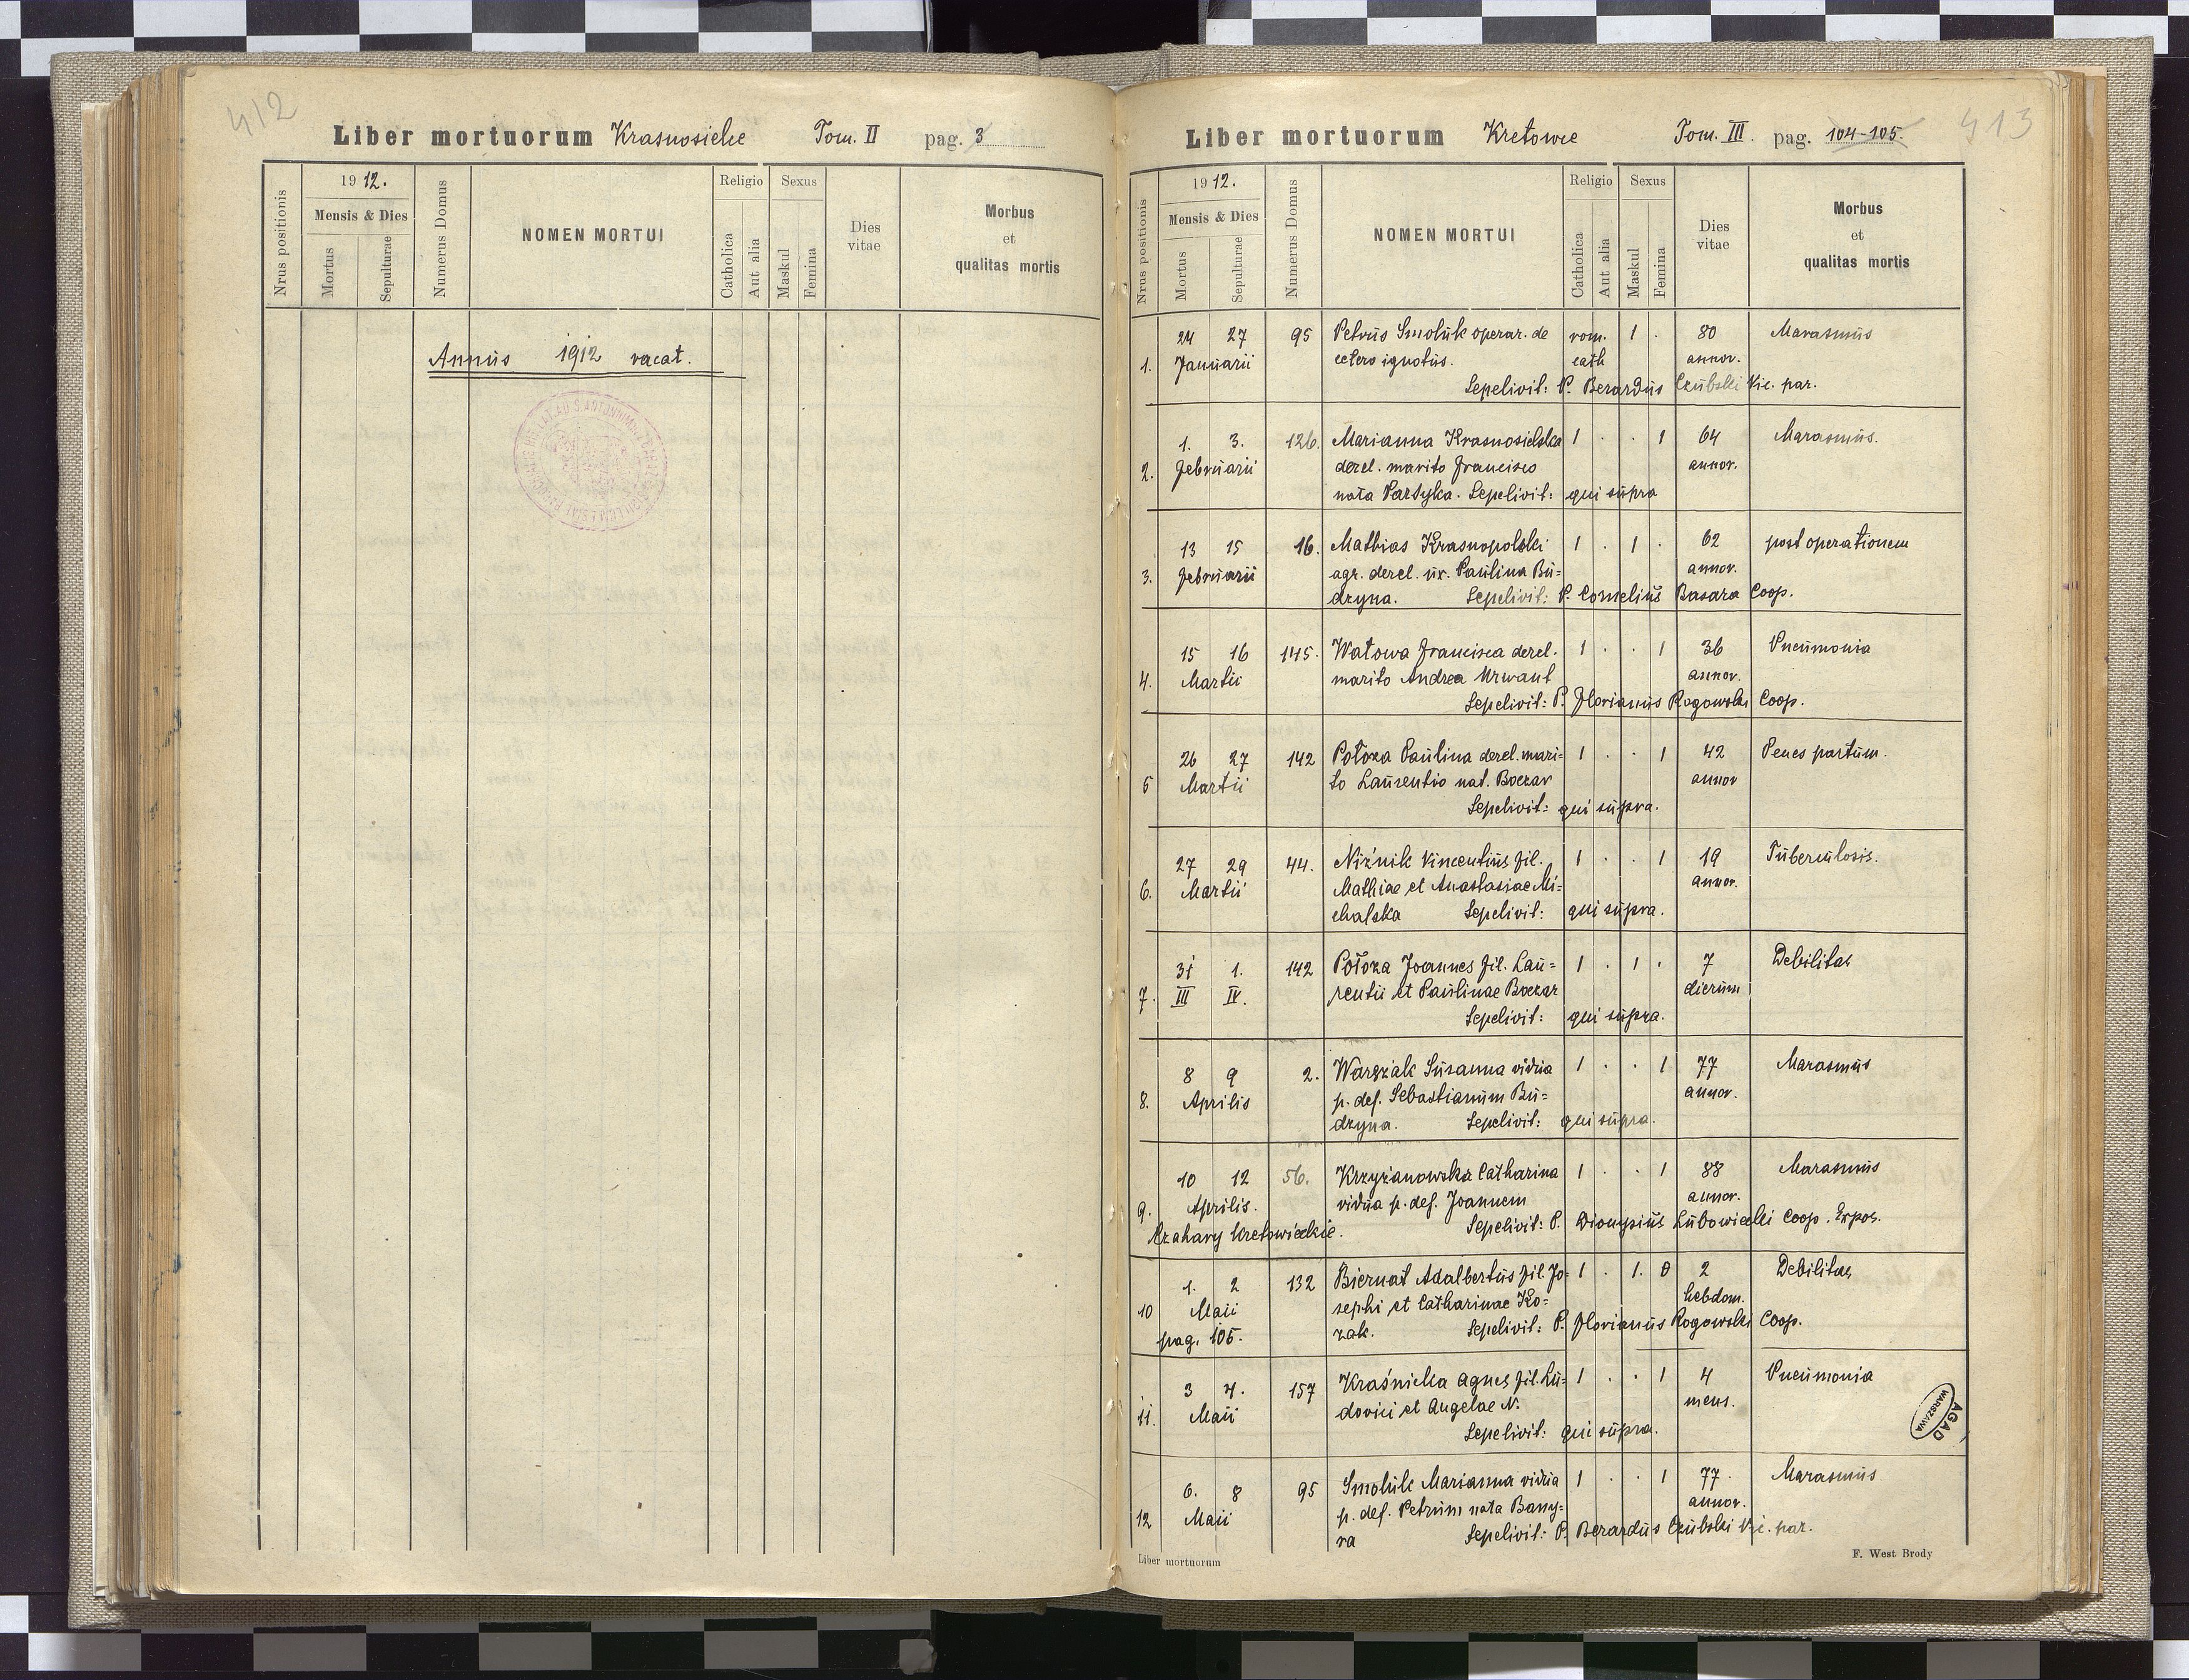 412
Liber mortuorum Krasnosielce Tom. II pag. 3
Nrus positionis
1912.
Mensis & Dies
Mortus
Sepulturae
Numerus Domus
NOMEN MORTUI
Religio
Catholica
Aut alia
Sexus
Maskul
Femina
Dies
vitae
Morbus
et
qualitas mortis
Annus 1912 vacat.
413
Liber mortuorum Kretowce Tom. III. pag. 104-105.
Nrus positionis
1912.
Mensis & Dies
Mortus
Sepulturae
Numerus Domus
NOMEN MORTUI
Religio
Catholica
Aut alia
Sexus
Maskul
Femina
Dies
vitae
Morbus
et
qualitas mortis
24 27 95 Petrus Smoluk operar. de rom. 1 . 80 Marasmus
1. Januarii cetero ignotus. cath annor.
Sepelivit: P. Berardus Czubski Vic. par.
1. 3. 126. Marianna Krasnosielska 1 . . 1 64 Marasmus.
2. Februarii derel. marito Francisco annor.
nata Partyka. Sepelivit: qui supra
13 15 16. Mathias Krasnopolski 1 . 1 . 62 post operationem
3. Februarii agr. derel. ux. Paulina Bu= annor.
dzyna. Sepelivit: P. Cornelius Basara Coop.
15 16 145. Watowa Francisca derel. 1 . . 1 36 Pneumonia
4. Martii marito Andrea Urwant annor.
Sepelivit: P. Florianus Rogowski Coop.
26 27 142 Połoza Paulina derel. mari= 1 . . 1 42 Penes partum.
5 Martii to Laurentio nat. Boczar annor
Sepelivit: qui supra.
27 29 44. Niźnik Vincentius fil. 1 . . 1 19 Tuberculosis.
6. Martii Mathiae et Anastasiae Mi= annor.
chalska Sepelivit: qui supra.
31 1. 142 Połoza Joannes fil. Lau= 1 . 1 . 7 Debilitas
7. III IV. rentii et Paulinae Boczar dierum
Sepelivit: qui supra.
8 9 2. Warszak Susanna vidua 1 . . 1 77 Marasmus
8. Aprilis p. def. Sebastianum Bu= annor.
dzyna. Sepelivit: qui supra.
10 12 56. Krzyżanowska Catharina 1 . . 1 88 Marasmus
9. Aprilis. vidua p. def. Joannem annor.
Czahary Kretowieckie. Sepelivit: P. Dionysius Lubowiecki Coop. Expos.
1. 2 132 Biernat Adalbertus fil. Jo= 1 . 1. 0 2 Debilitas
10 Maii sephi et Catharinae Ko= hebdom.
pag. 105. zak. Sepelivit: P. Florianus Rogowski Coop.
3 4. 157 Kraśnicka Agnes fil. Lu= 1 . . 1 4 Pneumonia
11. Maii dovici et Angelae N. mens.
Sepelivit: qui supra.
6. 8 95 Smoluk Marianna vidua 1 . . 1 77. Marasmus
12 Maii p. def. Petrum nata Bany= annor.
ra Sepelivit: P. Berardus Czubski Vic. par.
AGAD
WARSZAWA
Liber mortuorum
F. West Brody